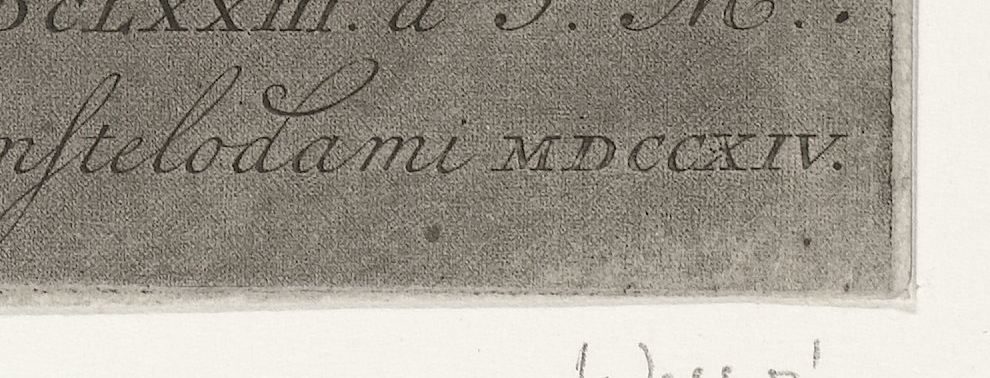 DCLXXIII. d 3. M..
mſtelodami MDCCXIV.